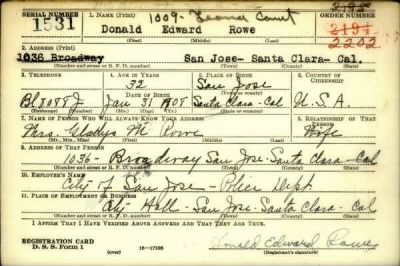 SERIAL NUMBER
1531
1. Name (Print)
1009- Court
Donald Edward Rowe
(First) (Middle) (Last)
ORDER NUMBER
2195
2191
2202
2. Address (Print)
1036 Broadway San Jose- Santa Clara- Cal.
(Number and street or R. F. D. number) (Town) (County) (State)
3. Telephone
4. Age in Years
32
5. Place of Birth
San Jose
6. Country of Citizenship
Date of Birth
Jan 31 1908
Santa Clara - Cal
U.S.A.
(Exchange) (Number) (Mo.) (Day) (Yr.) (State or country)
7. Name of Person Who Will Always Know Your Address
8. Relationship of That Person
Mrs. Gladys M Rowe Wife
(Mr., Mrs., Miss) (First) (Middle) (Last)
9. Address of That Person
1036- Broadway San Jose- Santa Clara - Cal
(Number and street or R. F. D. number) (Town) (County) (State)
10. Employer's Name
City of San Jose - Police Dept
11. Place of Employment or Business
City Hall - San Jose - Santa Clara - Cal
(Number and street or R. F. D. number) (Town) (County) (State)
I Affirm That I Have Verified Above Answers and That They Are True.
REGISTRATION CARD
D. S. S. Form 1
16-17105
Donald Edward Rowe
(Registrant's signature)